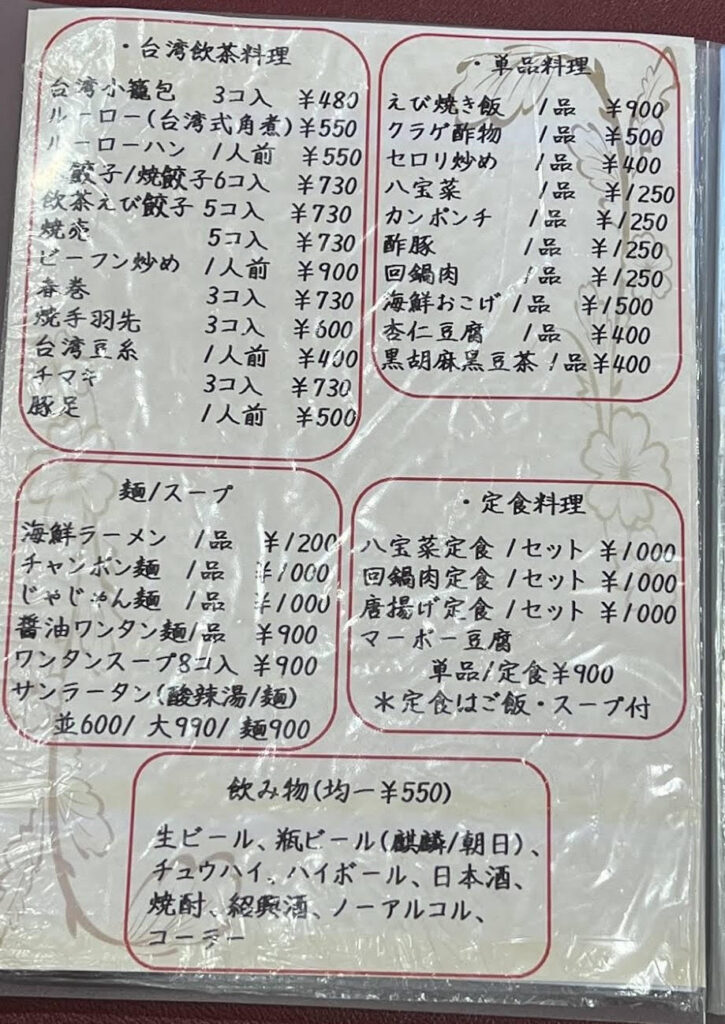 ・台湾飲茶料理
台湾小籠包 3コ入 ¥480
ルーロー(台湾式角煮) ¥550
ルーローハン 1人前 ¥550
餃子/焼餃子 6コ入 ¥730
飲茶えび餃子 5コ入 ¥730
焼売 5コ入 ¥730
ビーフン炒め 1人前 ¥900
春巻 3コ入 ¥730
焼手羽先 3コ入 ¥600
台湾豆糸 1人前 ¥400
チマキ 3コ入 ¥730
豚足 1人前 ¥500
・単品料理
えび焼き飯 1品 ¥900
クラゲ酢物 1品 ¥500
セロリ炒め 1品 ¥400
八宝菜 1品 ¥1250
カンポンチ 1品 ¥1250
酢豚 1品 ¥1250
回鍋肉 1品 ¥1250
海鮮おこげ 1品 ¥1500
杏仁豆腐 1品 ¥400
黒胡麻黒豆茶 1品 ¥400
麺/スープ
海鮮ラーメン 1品 ¥1200
チャンポン麺 1品 ¥1000
じゃじゃん麺 1品 ¥1000
醤油ワンタン麺 1品 ¥900
ワンタンスープ 8コ入 ¥900
サンラータン(酸辣湯/麺)
並600/ 大990/ 麺900
・定食料理
八宝菜定食 1セット ¥1000
回鍋肉定食 1セット ¥1000
唐揚げ定食 1セット ¥1000
マーボー豆腐
単品/定食¥900
*定食はご飯・スープ付
飲み物(均一¥550)
生ビール、瓶ビール(麒麟/朝日)、
チュウハイ、ハイボール、日本酒、
焼酎、紹興酒、ノーアルコル、
コーラー